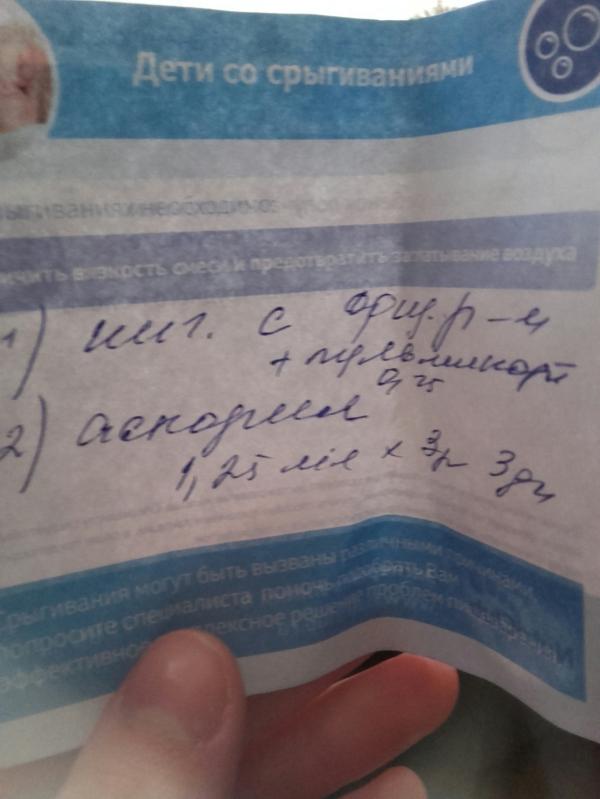 Дети со срыгиваниями
ыгиваниях необходимо:
ичить вязкость смеси и предотвратить заглатывание воздуха
1) инг. с физ. р-м
+ пульмикорт
0,25
2) аскорил
1,25 мл х 3 р 3 дн
Срыгивания могут быть вызваны различными причинами.
Попросите специалиста помочь подобрать Вам
эффективное комплексное решение проблем пищеварения